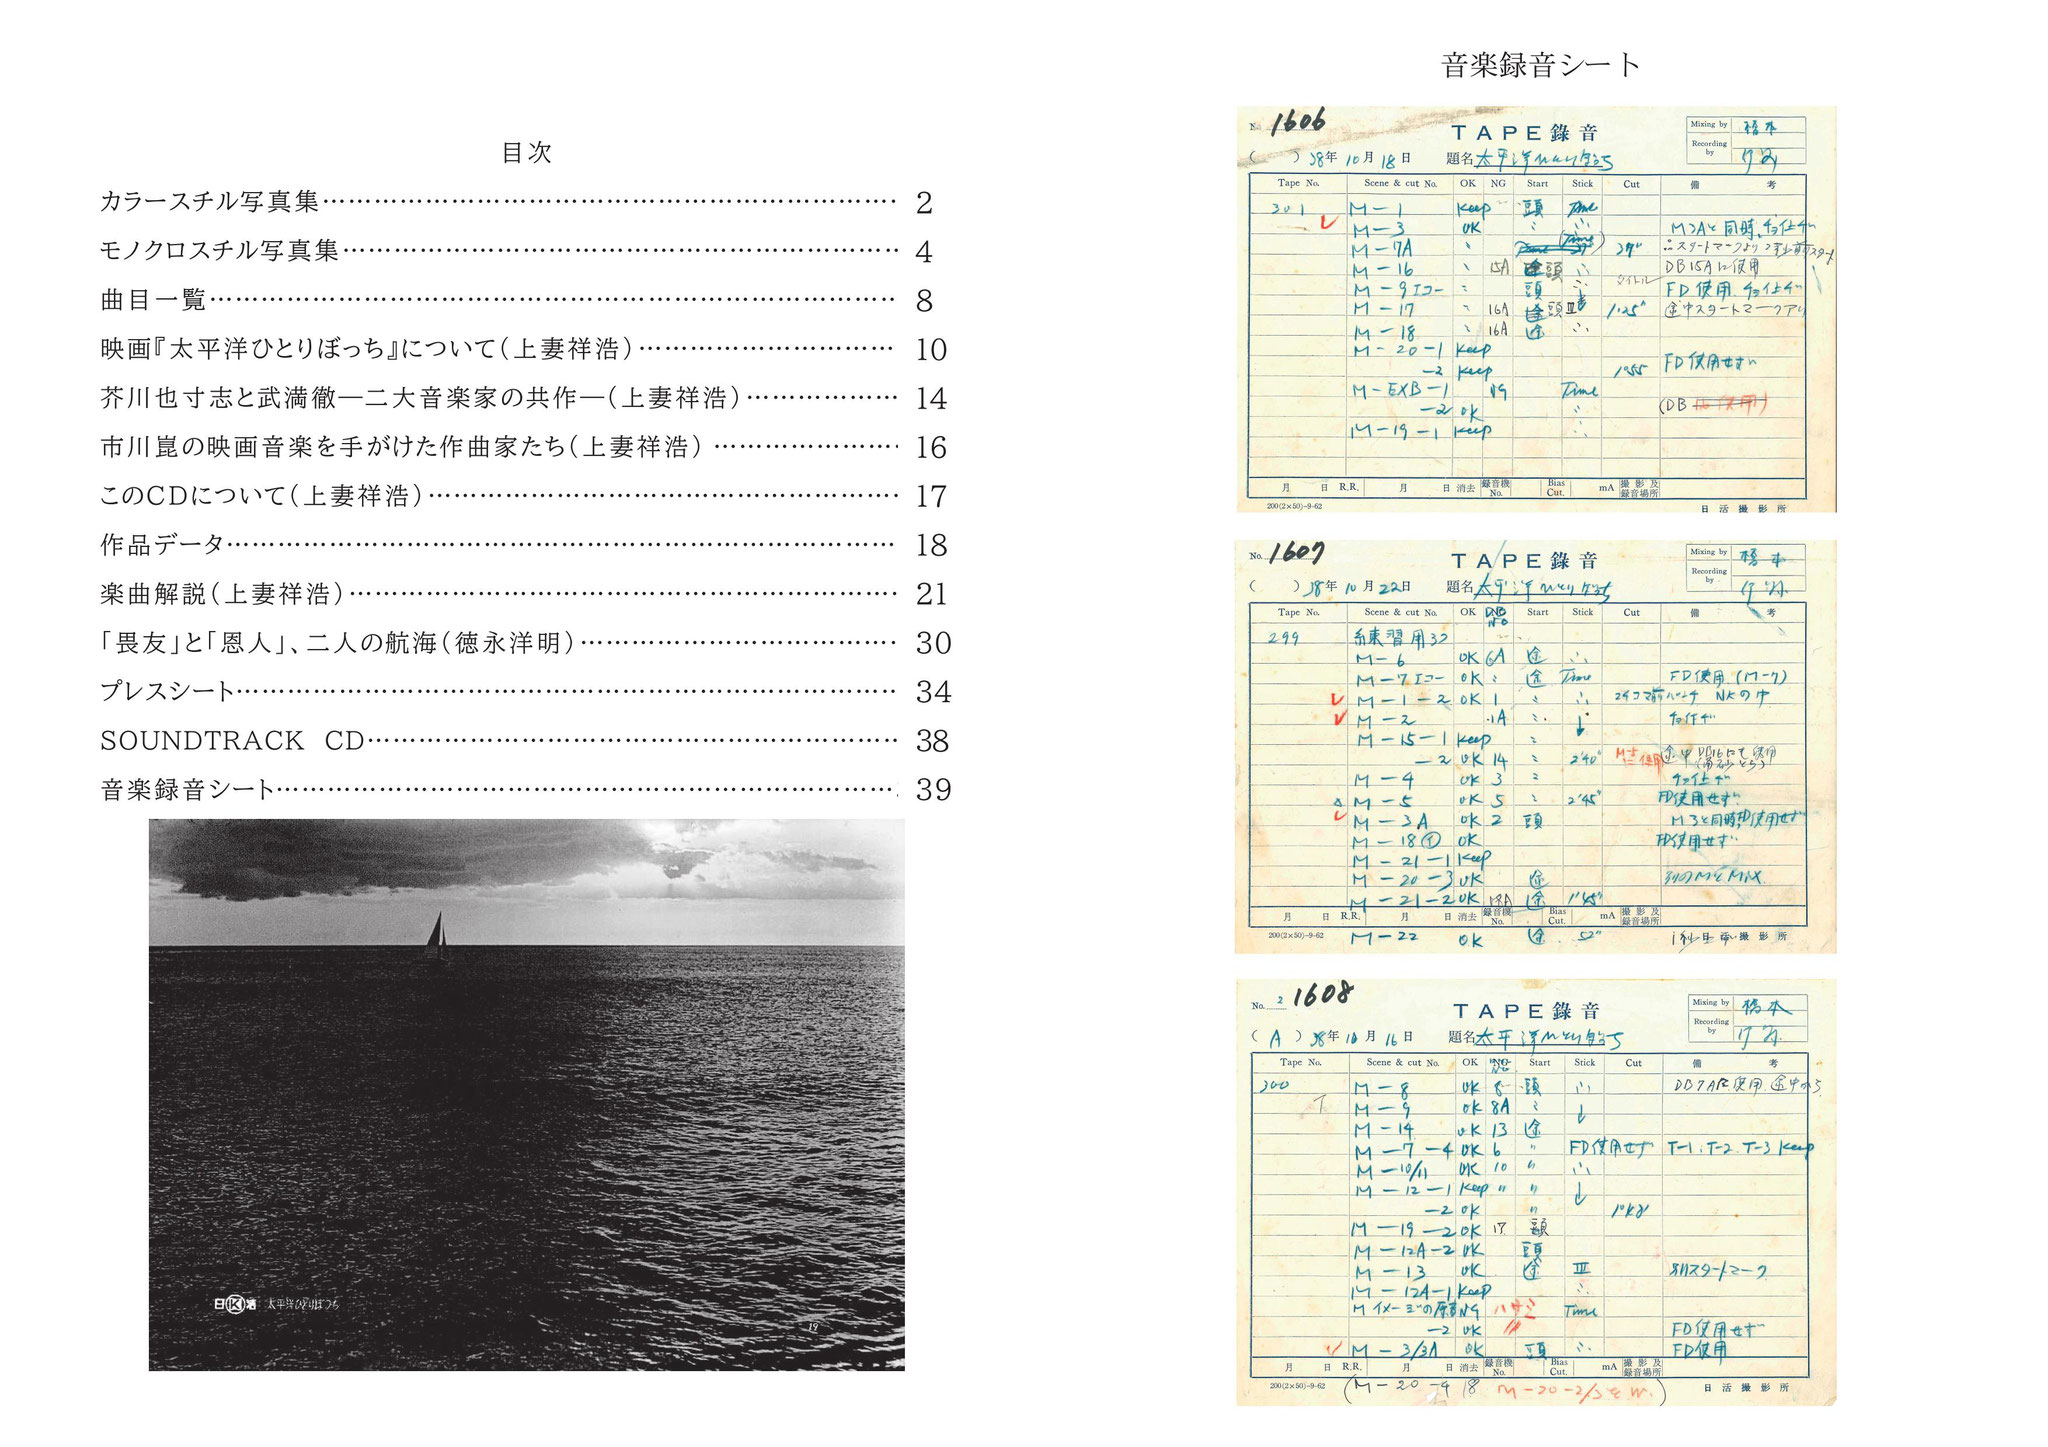 目次
カラースチル写真集……………………………………………………………… 2
モノクロスチル写真集…………………………………………………………… 4
曲目一覧………………………………………………………………………… 8
映画『太平洋ひとりぼっち』について(上妻祥浩)………………………… 10
芥川也寸志と武満徹―二大音楽家の共作―(上妻祥浩)……………… 14
市川崑の映画音楽を手がけた作曲家たち(上妻祥浩) ………………… 16
このCDについて(上妻祥浩)……………………………………………… 17
作品データ……………………………………………………………………… 18
楽曲解説(上妻祥浩)………………………………………………………… 21
「畏友」と「恩人」、二人の航海(徳永洋明)……………………………… 30
プレスシート…………………………………………………………………… 34
SOUNDTRACK CD……………………………………………………… 38
音楽録音シート………………………………………………………………… 39
日活 太平洋ひとりぼっち
19
音楽録音シート
1606
TAPE録音
Mixing by 橋本
Recording by
( ) 38年 10月 18日 題名 太平洋ひとりぼっち
Tape No. Scene & cut No. OK NG Start Stick Cut 備考
301 M-1 Keep 頭 Time
M-3 OK
M-7A 27"
M-16 15A 頭 DB15Aに使用
M-9エコー 頭 FD使用
M-17 16A 頭 1'25" 途中スタートマークアリ
M-18 16A 途
M-20-1 Keep
-2 Keep 1'55 FD使用せず
M-EXB-1 NG Time
-2 OK
M-19-1 Keep
月 日 R.R. 月 日 消去 録音機No. Bias Cut. mA 撮影及録音場所
200(2×50)-9-62 日活撮影所
No. 1607
TAPE録音
Mixing by 橋本
Recording by
( ) 38年 10月 22日 題名 太平洋ひとりぼっち
Tape No. Scene & cut No. OK Start Stick Cut 備考
299 練習用3つ
M-6 OK 6A 途
M-7エコー OK 途 Time FD使用(M-7)
M-1-2 OK 1
M-2 1A
M-15-1 Keep
-2 OK 14 2'40"
M-4 OK 3
M-5 OK 5 2'45" FD使用せず
M-3A OK 2 頭
M-18 OK FD使用せず
M-21-1 Keep
M-20-3 OK 途
M-21-2 OK 18A 途 1'45"
月 日 R.R. 月 日 消去 録音機No. Bias Cut. mA 撮影及録音場所
M-22 OK 途 52"
200(2×50)-9-62 撮影所
No. 2 1608
TAPE録音
Mixing by 橋本
Recording by
( A ) 38年 10月 16日 題名 太平洋ひとりぼっち
Tape No. Scene & cut No. OK Start Stick Cut 備考
300 M-8 OK 8 頭 DB7Aに使用 途中から
M-9 OK 8A
M-14 OK 13 途
M-7-4 OK 6 〃 FD使用せず T-1.T-2.T-3 Keep
M-10/11 OK 10 〃
M-12-1 Keep 〃 〃
-2 OK 〃
M-19-2 OK 17 頭
M-12A-2 OK 頭
M-13 OK 途 III 別スタートマーク
M-12A-1 Keep
M イメージの NG ハサミ Time
-2 OK 〃 FD使用せず
M-3/3A OK 頭 FD使用
月 日 R.R. 月 日 消去 録音機No. Bias Cut. mA 撮影及録音場所
200(2×50)-9-62 (M-20-4 18 M-20-2/3 ) 日活撮影所